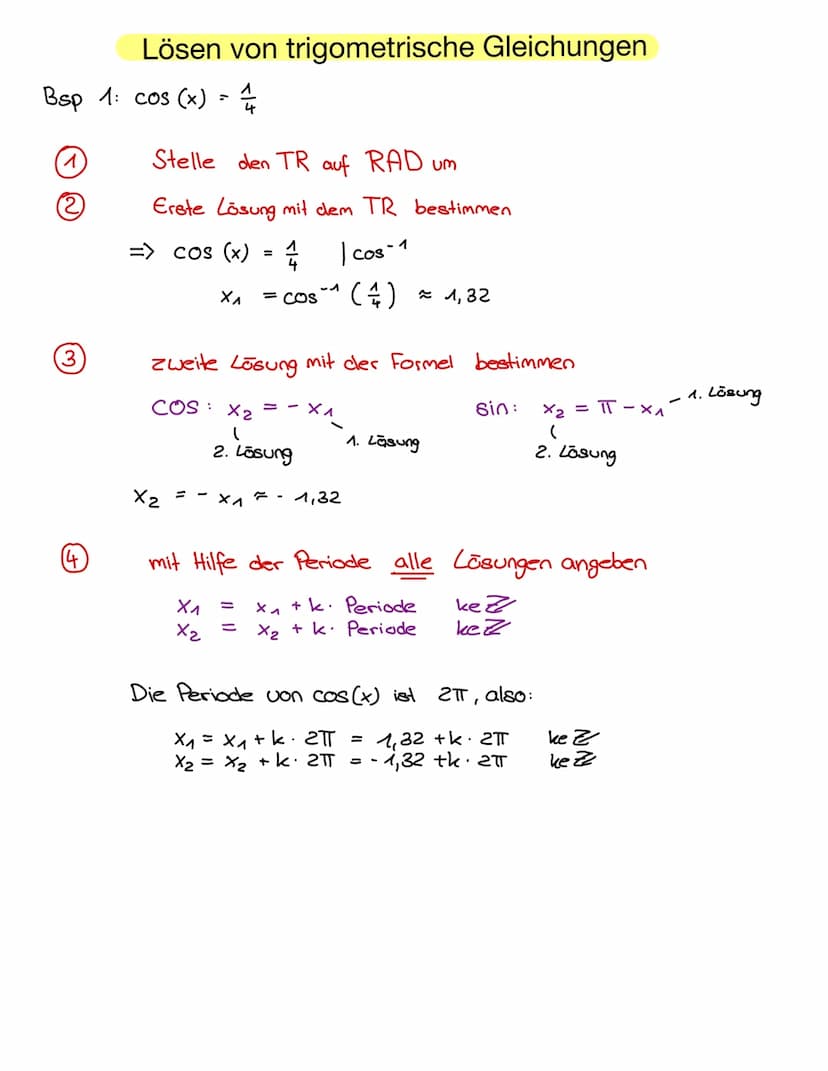 Lösen von trigometrische Gleichungen
Bsp 1: cos (x) = 1/4
① Stelle den TR auf RAD um
② Erste Lösung mit dem TR bestimmen
=> cos (x) = 1/4 | cos⁻¹
x₁ = cos⁻¹ (1/4) ≈ 1,32
③ zweite Lösung mit der Formel bestimmen
cos: x₂ = - x₁ sin: x₂ = π - x₁ 1. Lösung
2. Lösung 1. Lösung 2. Lösung
x₂ = - x₁ ≈ - 1,32
④ mit Hilfe der Periode alle Lösungen angeben
x₁ = x₁ + k · Periode k∈ℤ
x₂ = x₂ + k · Periode k∈ℤ
Die Periode von cos(x) ist 2π, also:
x₁ = x₁ + k · 2π = 1,32 + k · 2π k∈ℤ
x₂ = x₂ + k · 2π = - 1,32 + k · 2π k∈ℤ